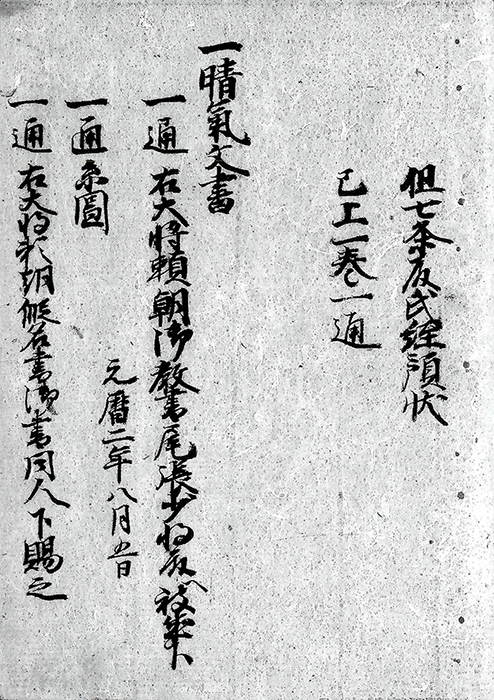 但七条殿氏経預状
已上一巻一通
一晴氣文書
一通 右大将頼朝御教書尾張少将殿被出之
元暦二年八月五日
一通 系圖
一通 右大将頼朝假名書御書同人下賜之